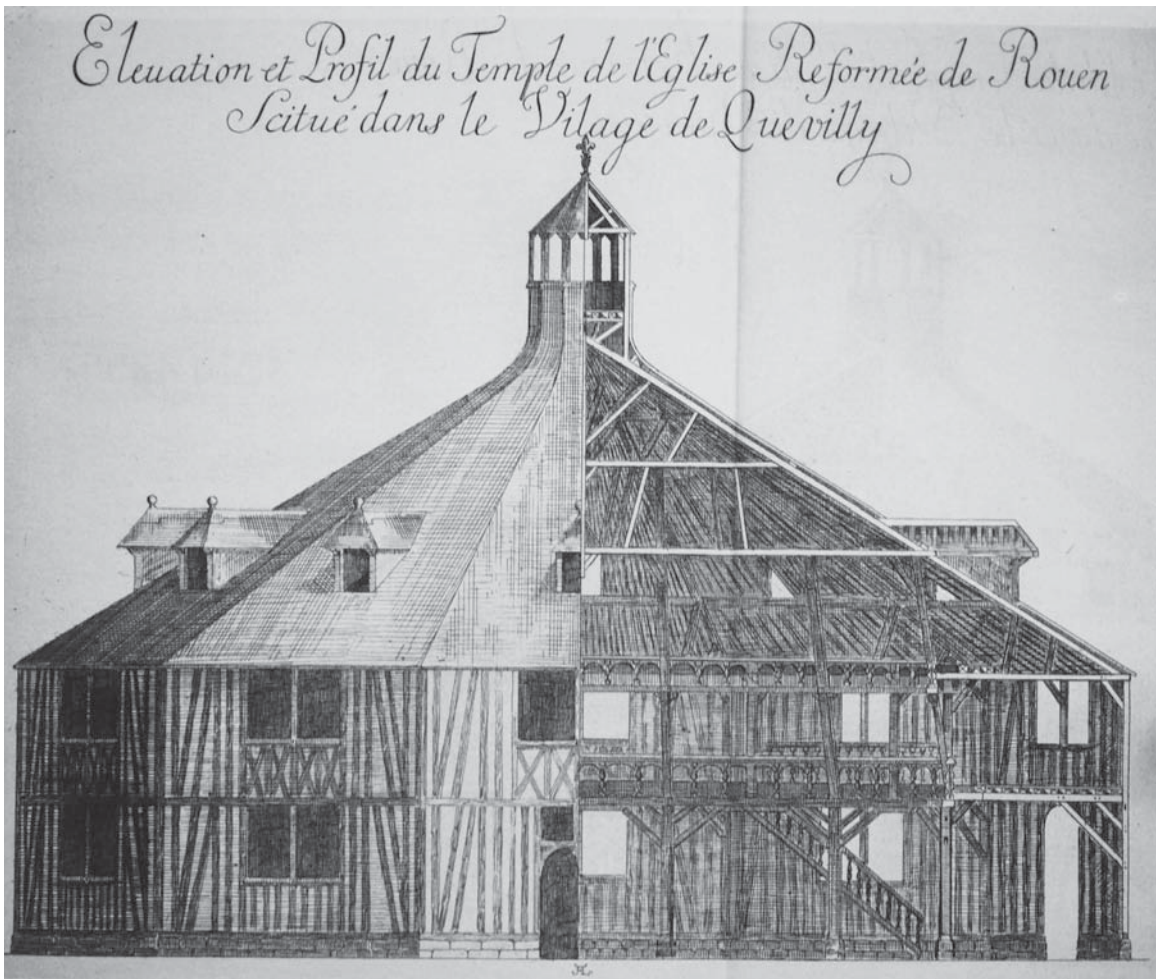 Eleuation et Profil du Temple de l'Eglise Reformée de Rouen
Scitué dans le Vilage de Quevilly